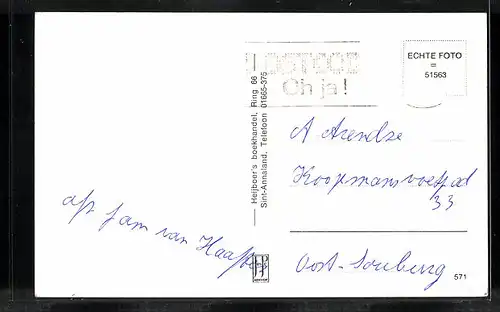 Oh ja!
ECHTE FOTO
=
51563
Heijboer's boekhandel, Ring 66
Sint-Annaland. Telefoon 01665-375
A Arendze
Koopmansvoetpad
33
Oost-Souburg
afz fam van Haaften
571